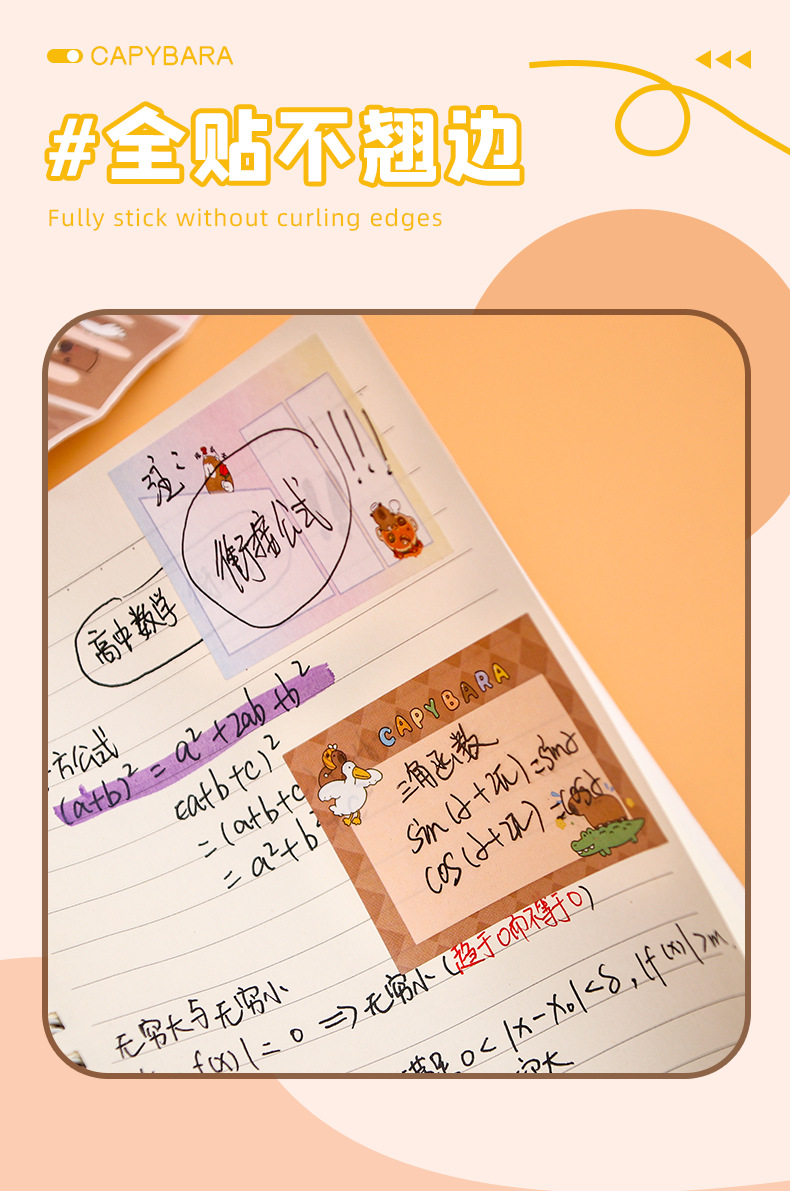 CAPYBARA
#全贴不翘边
Fully stick without curling edges
注:
!!!
衔接公式
高中数学
方公式
(a+b)² = a²+2ab+b²
(a+b+c)²
=(a+b+c
= a²+b²
CAPYBARA
三角函数
sin(α+2π)=sinα
cos(α+2π)=cosα
无穷大与无穷小
f(x)|=0 => 无穷小(趋于0而不等于0)
0<|x-x₀|<δ,|f(x)|>m.
穷大